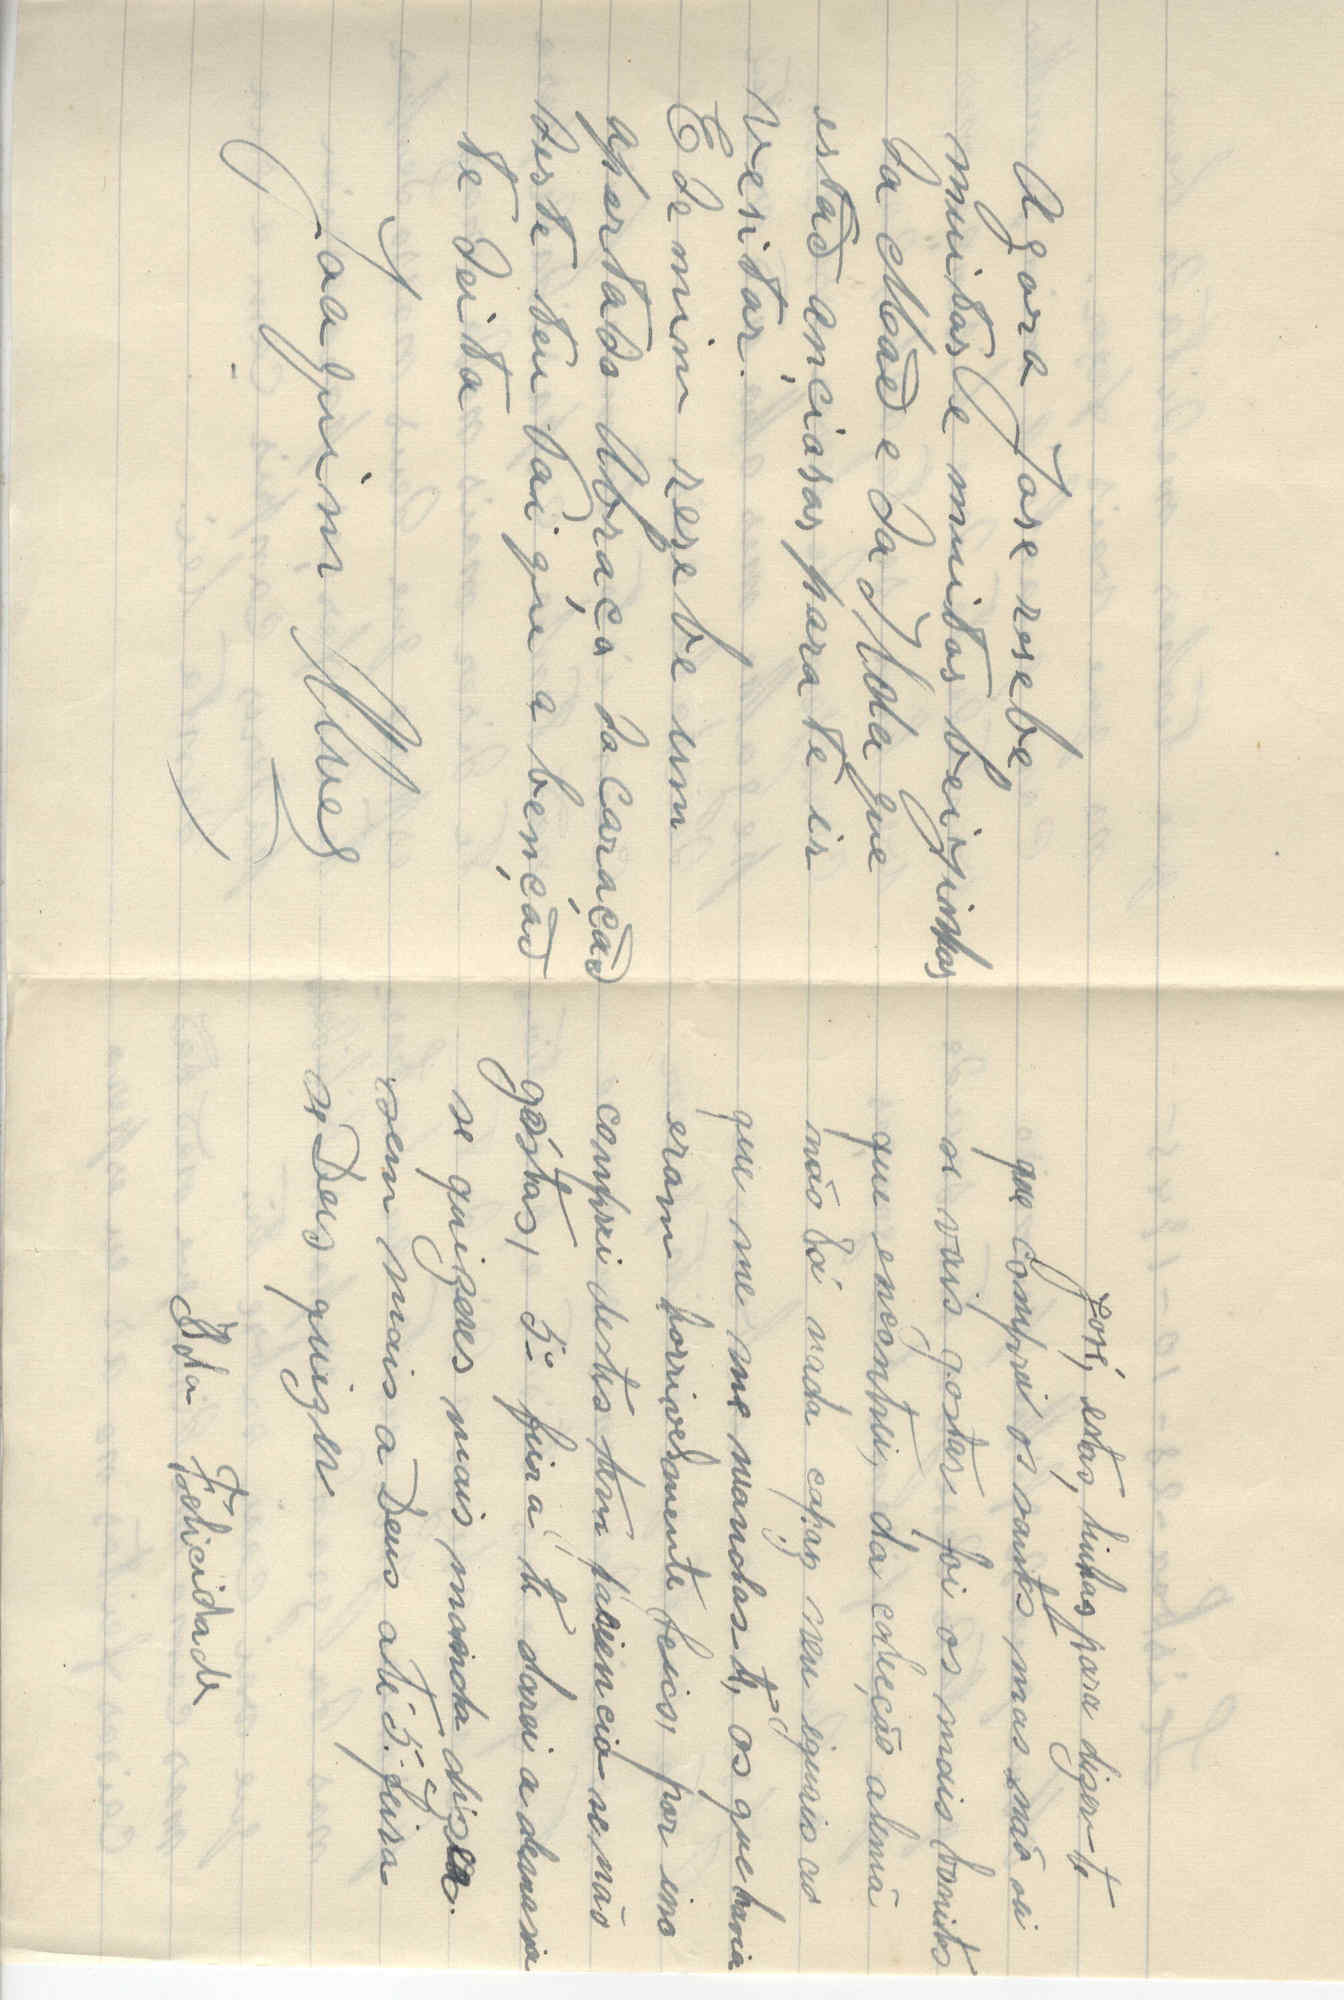 Agora Jose resebe
muitas e muitas beijinhos
da Maẽ e da Ilda que
estaõ anciosas para te ir
vesitar.
E de mim resebe um
apertado Abraço da caração
deste teu Pai que a bençaõ
te deita
Joaquim Alves
José, estas, linhas para diger-te
que comprei os santos mas não sei
se vais gostar foi os mais bonitos
que encontrei, da coleção alemã
não há nada capaz nem eguais ao
que me me mandaste, os que havia
eram horrivelmente feios, por isso
comprei destes tem paciencia se não
góstas, 5ª feira te darei a demasia
se quizeres mais manda dizer.
sem mais a Deus até 5ª feira
se Deus quizer
Ilda Felicidade